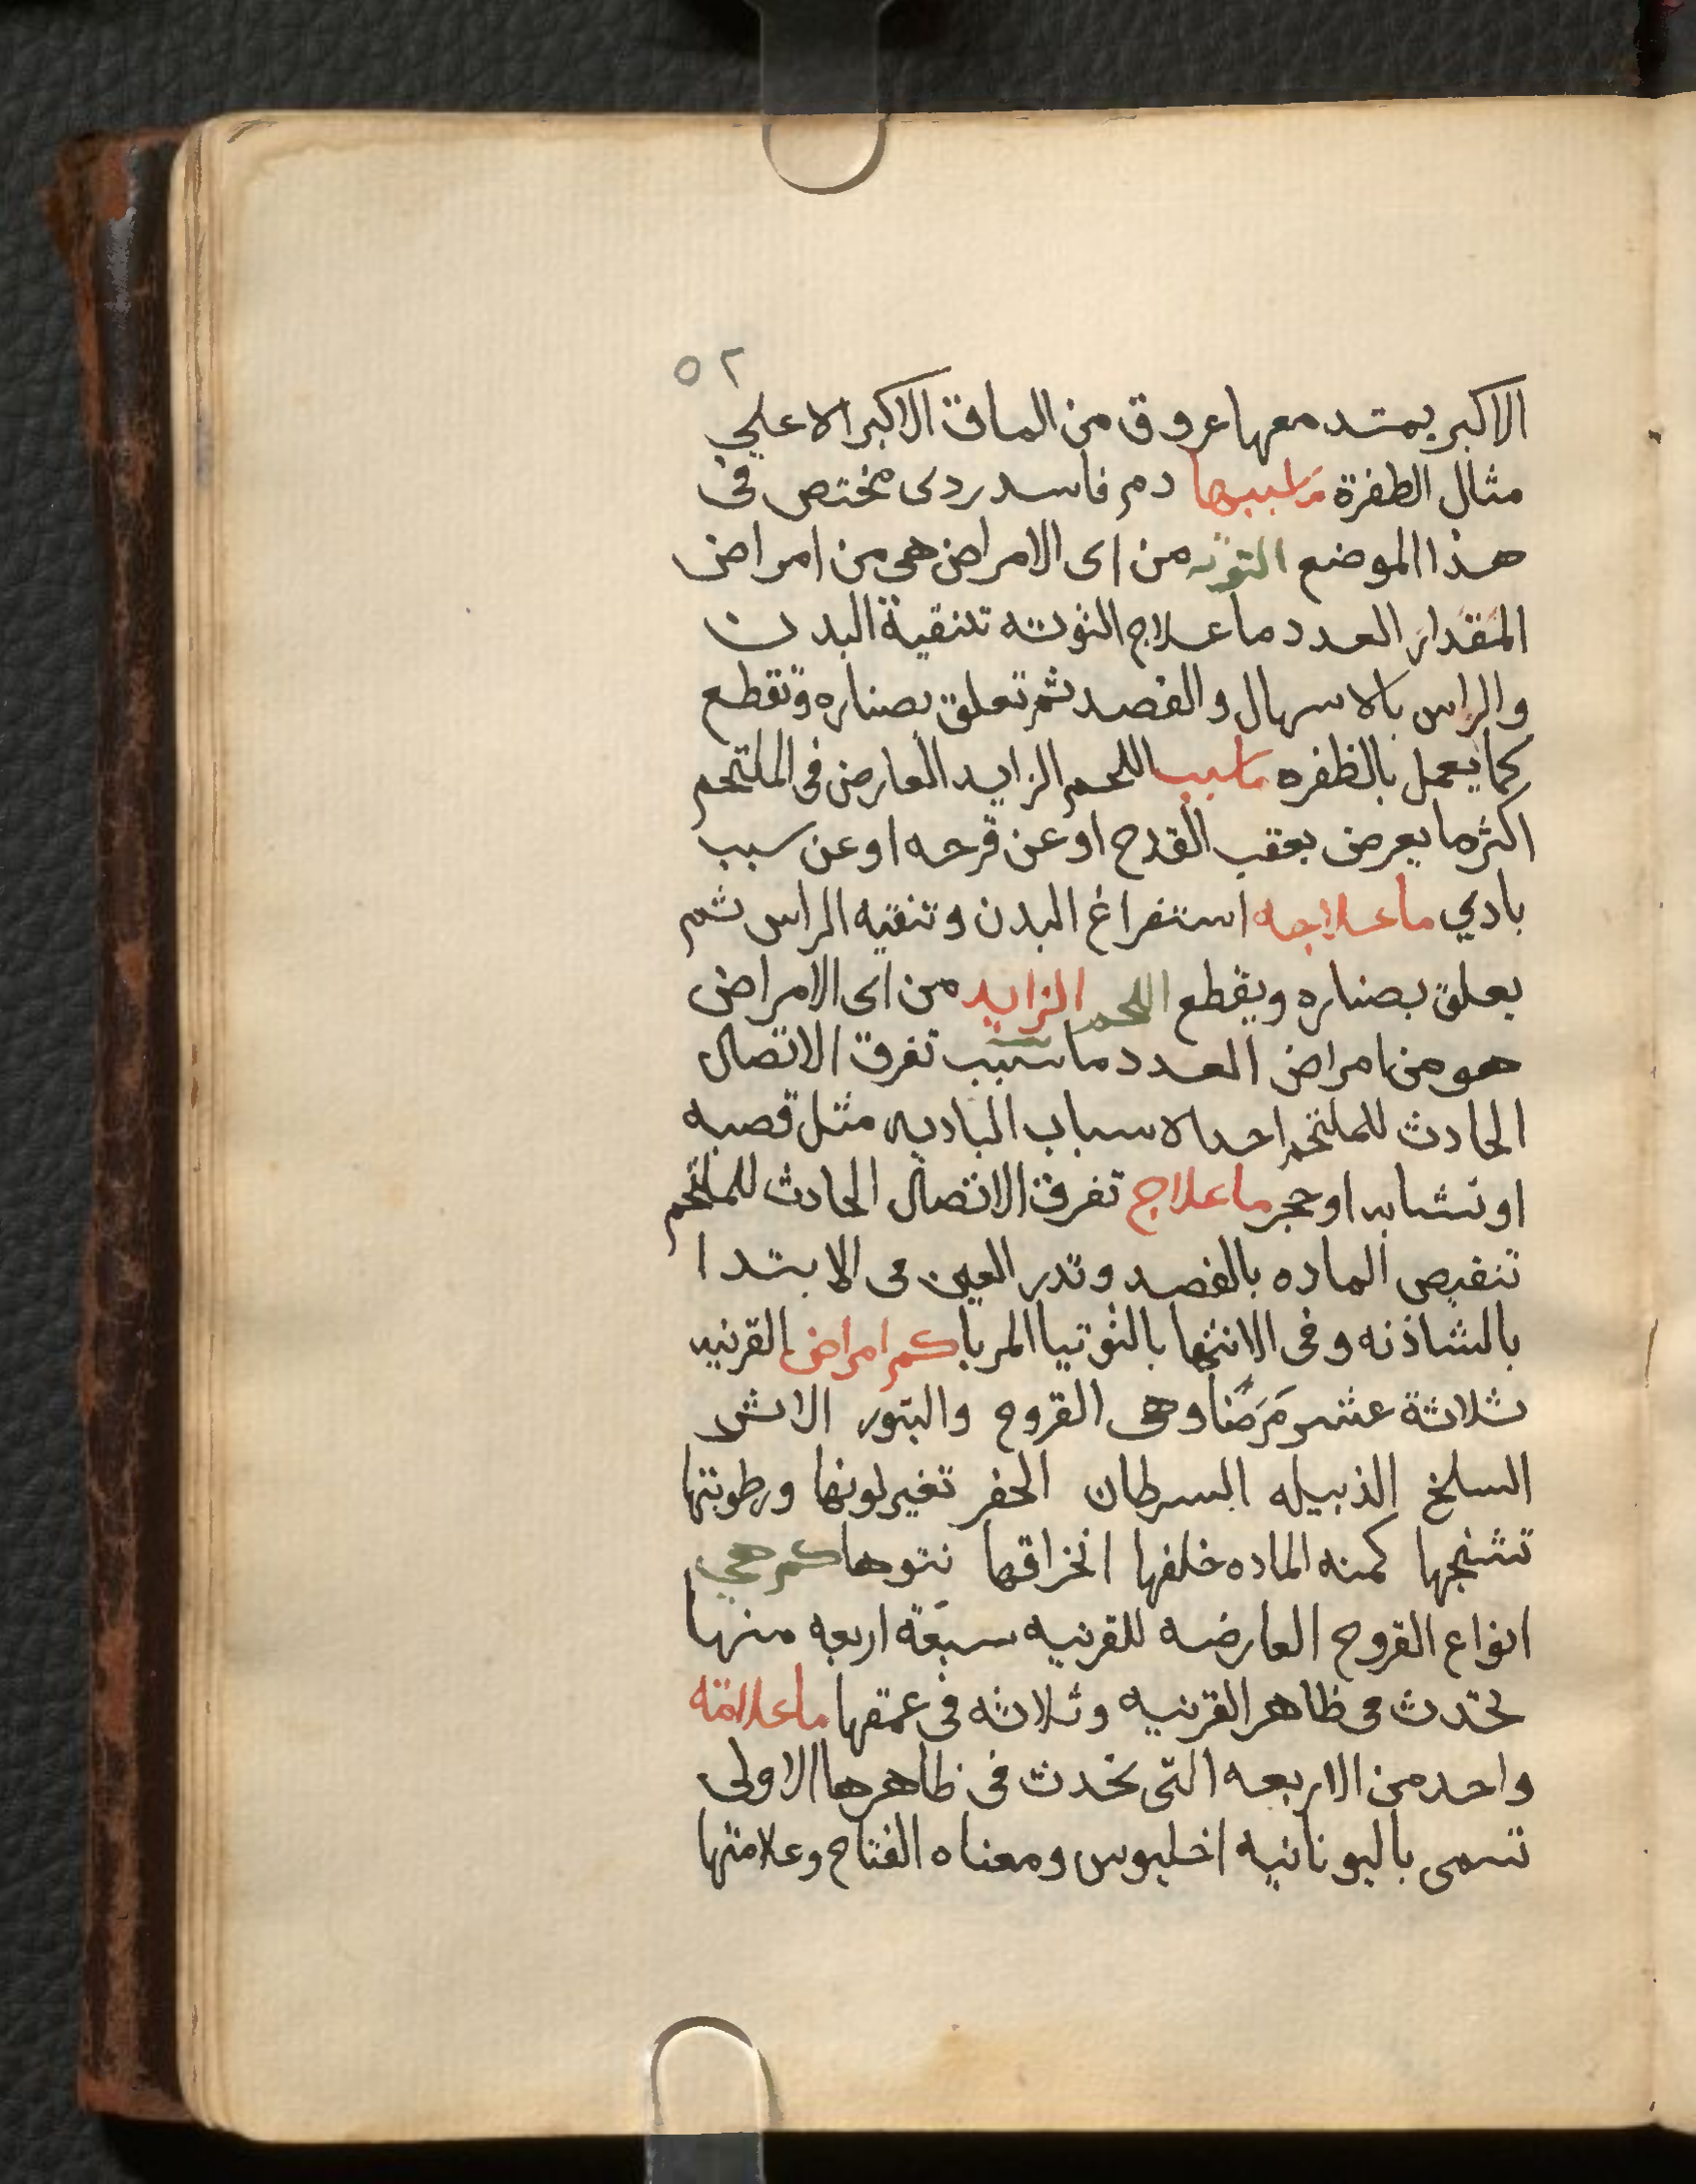 ٥٢
الاكبر يمتد معها عروق من الماق الاكبر الاعلي
مثال الطفرة ما سببها دم فاسد ردى مختص فى
هذا الموضع التوته من اى الامراض هى من امراض
المقدار العدد ما علاج التوته تنقية البدن
والراس بالاسهال والفصد ثم تعلق بصناره وتقطع
كما يعمل بالظفره ما سبب اللحم الزايد العارض فى الملتحم
اكثر ما يعرض بعقب القدح او عن قرحه او عن سبب
بادي ما علاجه استفراغ البدن وتنقيه الراس ثم
يعلق بصناره ويقطع اللحم الزايد من اى الامراض
هو من امراض العدد ما سبب تفرق الاتصال
الحادث للملتحم احد الاسباب الباديه مثل قصبه
او نشابه او حجر ما علاج تفرق الاتصال الحادث للملتحم
تنقيص الماده بالفصد وتدر العين فى الابتدا
بالشاذنه وفى الانتها بالتوتيا المربا كم امراض القرنيه
ثلاثة عشر مرضًا وهى القروح والبثور الاثر
السلخ الذبيله السرطان الحفر تغير لونها ورطوبتها
تشنجها كمنه الماده خلفها انخراقها نتوها كم هي
انواع القروح العارضه للقرنيه سبعة اربعه منها
تحدث فى ظاهر القرنيه وثلاثه فى عمقها ما علامة
واحد من الاربعه التى تحدث فى ظاهرها الاولى
تسمى باليونانيه اخليوس ومعناه القتاح وعلامتها